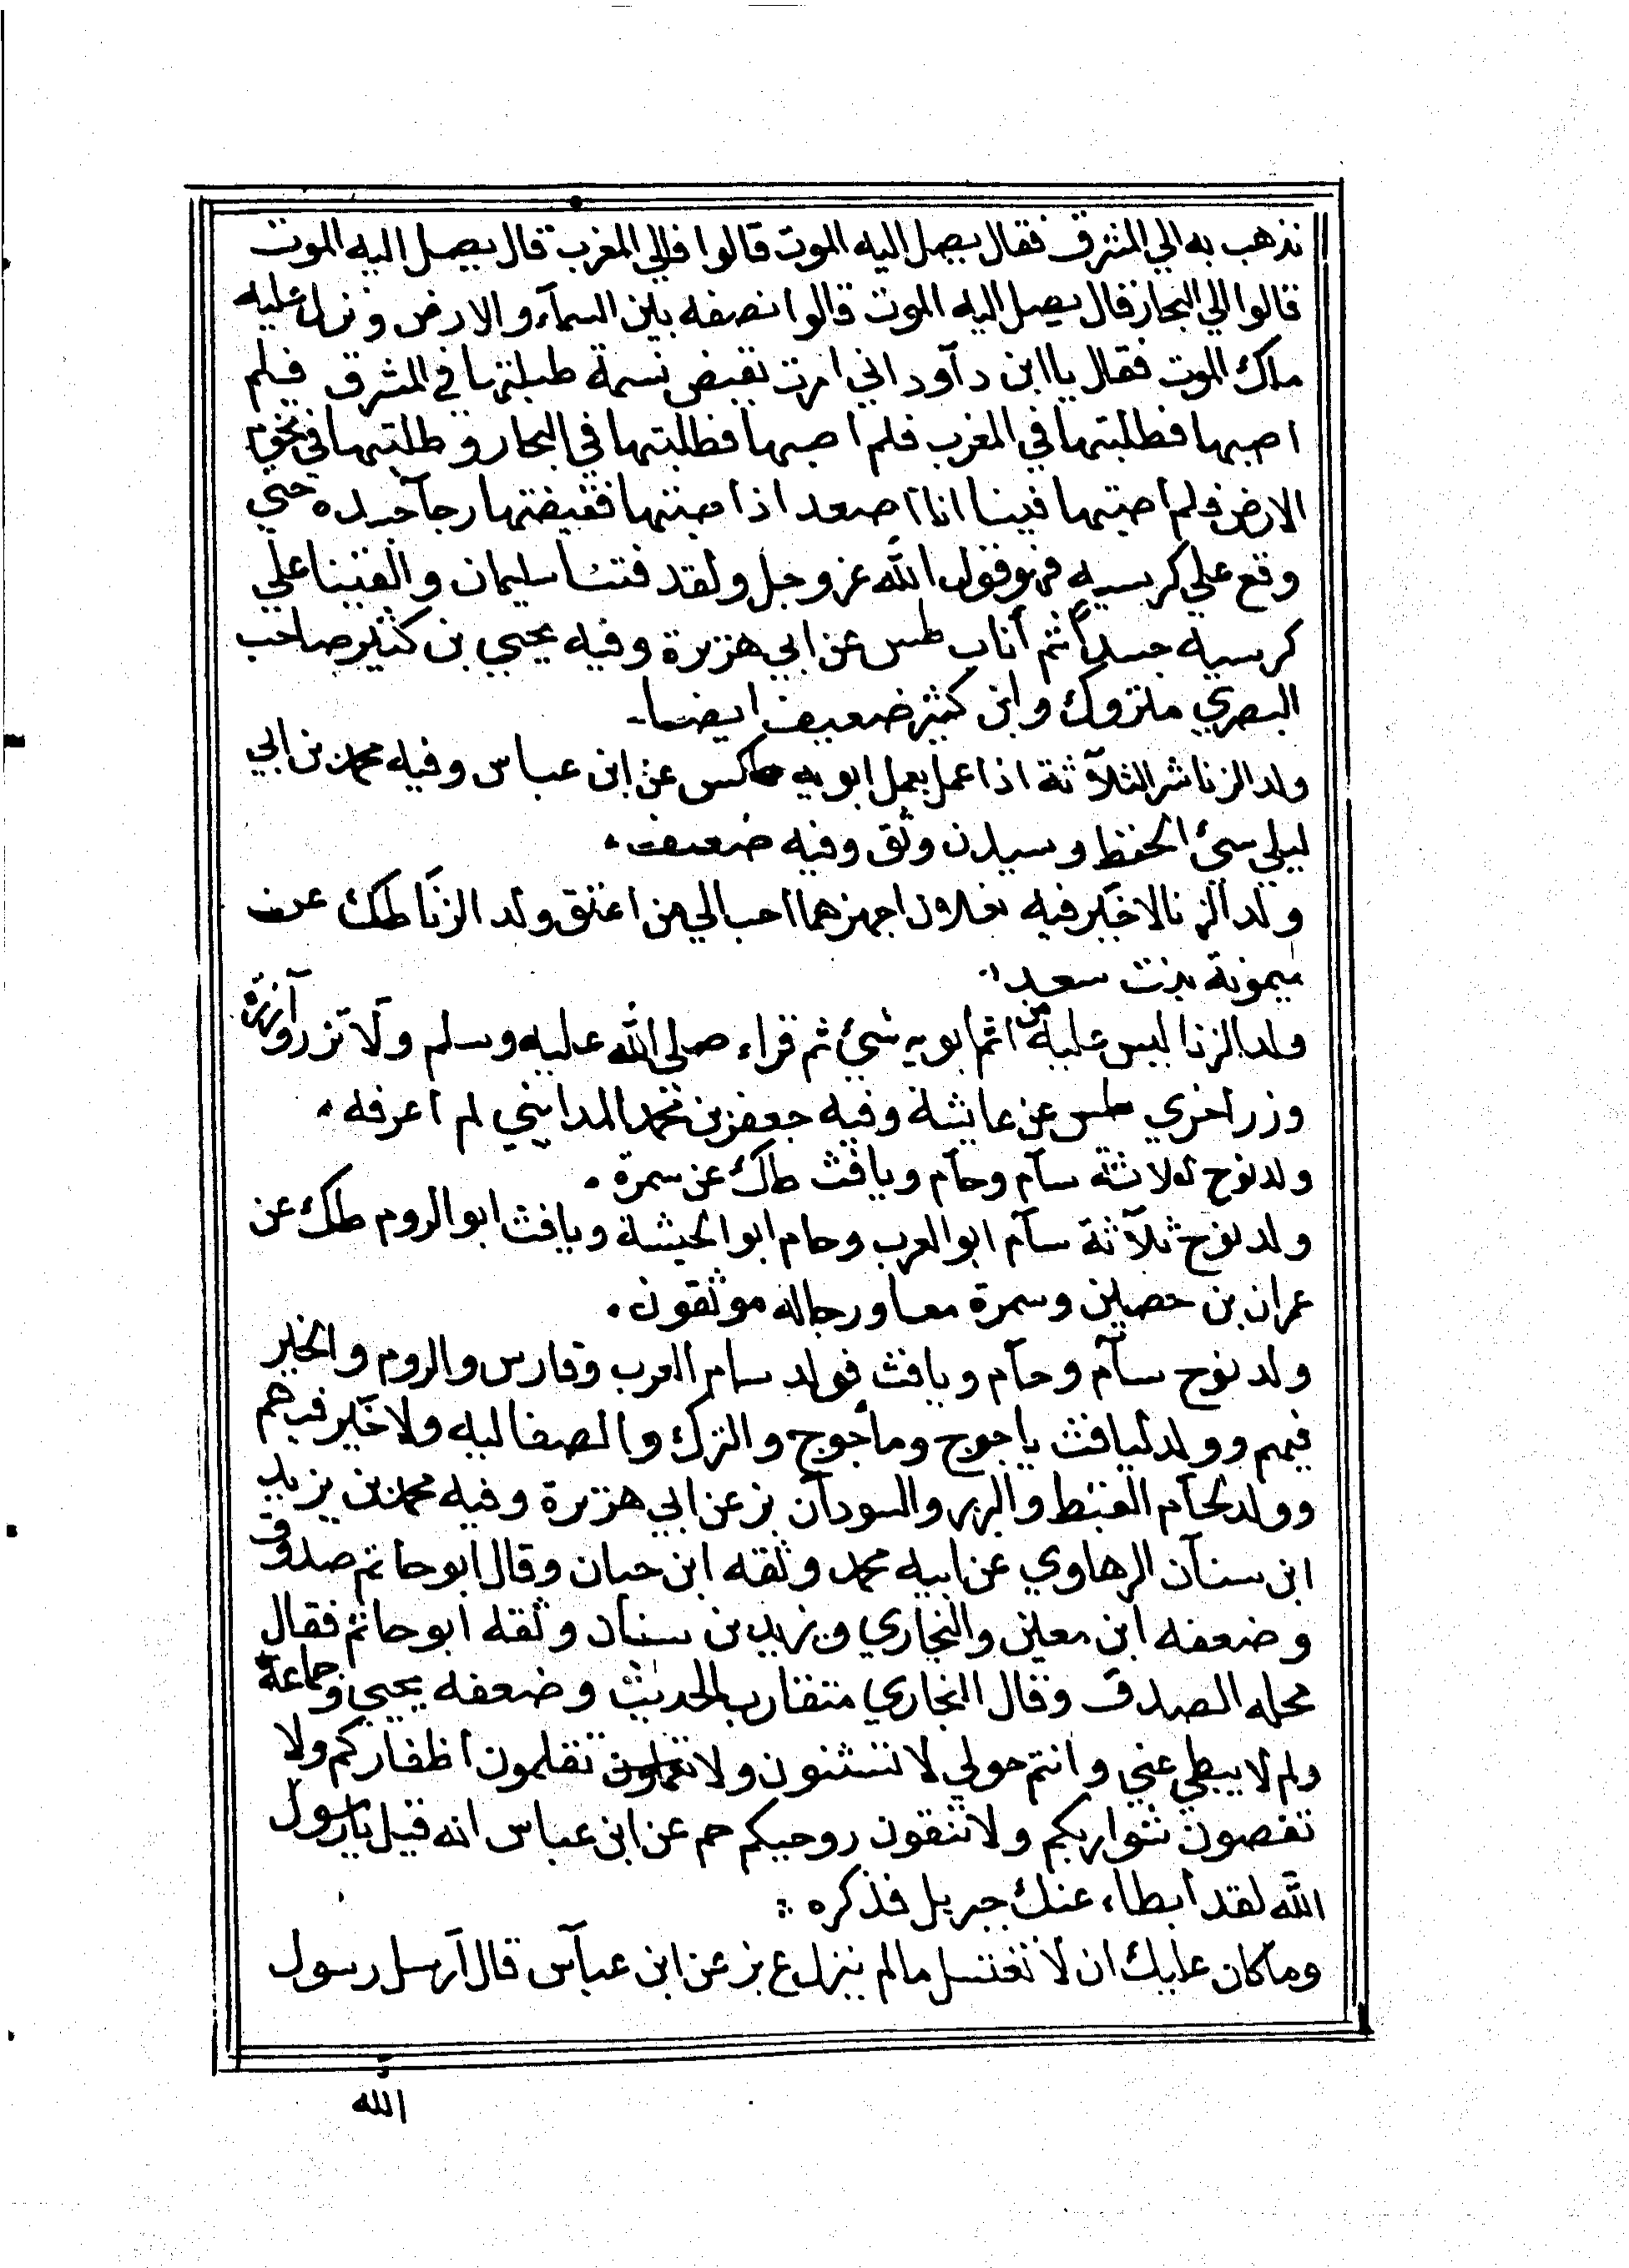 نذهب به الي المشرق فقال يصل اليه الموت قالوا فالي المغرب قال يصل اليه الموت
قالوا الي البحار قال يصل اليه الموت قالوا نصفه بين السمآء والارض ونزل عليه
ملك الموت فقال يا ابن دآود اني امرت بقبض نسمة طبلتها في المشرق فلم
اصبها فطلبتها في المغرب فلم اصبها فطلبتها في البحار وطلبتها في تخوم
الارض فلم اصبها فبينا انا اصعد اذا صبتها فقبضتها رجآ جسده حتي
وقع علي كرسيه فهو قول الله عز وجل ولقد فتنا سليمان والقينا علي
كرسيه جسداً ثم أناب طس عن ابي هريرة وفيه يحيي بن كثير صاحب
البصري متروك وابن كثير ضعيف ايضا
ولد الزنا شر الثلآثة اذا عمل بعمل ابويه طكس عن ابن عباس وفيه محمد بن ابي
ليلي سئ الحفظ و وثق وفيه ضعيف
ولد الزنا لا خير فيه نعلان اجهز هما احب الي من اعتق ولد الزنا طك عن
ميمونة بنت سعد
ولد الزنا ليس عليه من اثم ابويه شئ ثم قراء صلي الله عليه وسلم ولا تزر وآزرة
وزر اخري طس عن عايشة وفيه جعفر بن محمد المدايني لم اعرفه
ولد نوح ثلاثة سآم وحآم ويافث طك عن سمرة
ولد نوح ثلآثة سآم ابو العرب وحام ابو الحبشة ويافث ابو الروم طك عن
عمران بن حصين وسمرة معا ورجاله موثقون
ولد نوح سآم وحآم ويافث فولد سام العرب وفارس والروم والخير
فيهم وولد ليافث ياجوج ومأجوج والترك والصقالبه ولا خير فيهم
وولد لحآم القبط والبربر والسودان بز عن ابي هريرة وفيه محمد بن يزيد
ابن سنآن الرهاوي عن ابيه محمد وثقه ابن حبان وقال ابو حاتم صدوق
وضعفه ابن معين والبخاري ويزيد بن سنان وثقه ابو حاتم فقال
محله الصدق وقال البخاري متقارب الحديث وضعفه يحيي وجماعة
ولم لا يبطي عني وانتم حولي لا تستنون ولا تقلمون اظفاركم ولا
تقصون شواربكم ولا تنقون روحبكم حم عن ابن عباس انه قيل يا رسول
الله لقد أبطاء عنك جبريل فذكره
وما كان عليك ان لا تغتسل ما لم ينزل ع بز عن ابن عبآس قال آرسل رسول
الله